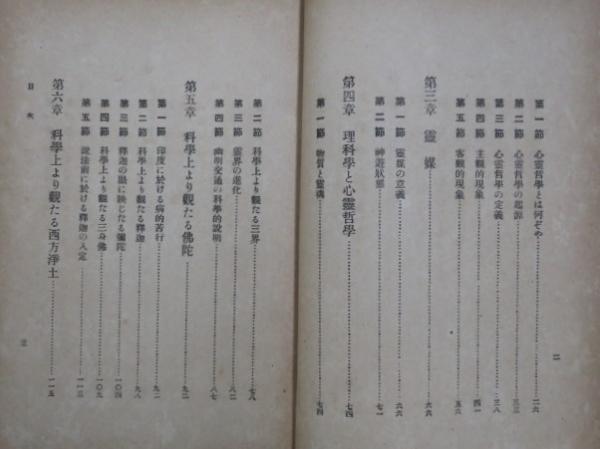 第一節 心靈哲學とは何ぞや……二六
第二節 心靈哲學の起源……三三
第三節 心靈哲學の定義……三八
第四節 主觀的現象……四一
第五節 客觀的現象……五六
第三章 靈媒……六六
第一節 靈媒の意義……六六
第二節 神遊狀態……七一
第四章 理科學と心靈哲學……七四
第一節 物質と靈魂……七四
二
第二節 科學上より觀たる三界……七八
第三節 靈界の進化……八二
第四節 幽明交通の科學的說明……八七
第五章 科學上より觀たる佛陀……九二
第一節 印度に於ける病的苦行……九二
第二節 科學上より觀たる釋迦……九八
第三節 釋迦の眼に映じたる彌陀……一〇四
第四節 科學上より觀たる三身佛……一〇九
第五節 說法前に於ける釋迦の入定……一一三
第六章 科學上より觀たる西方淨土……一一五
目次
三